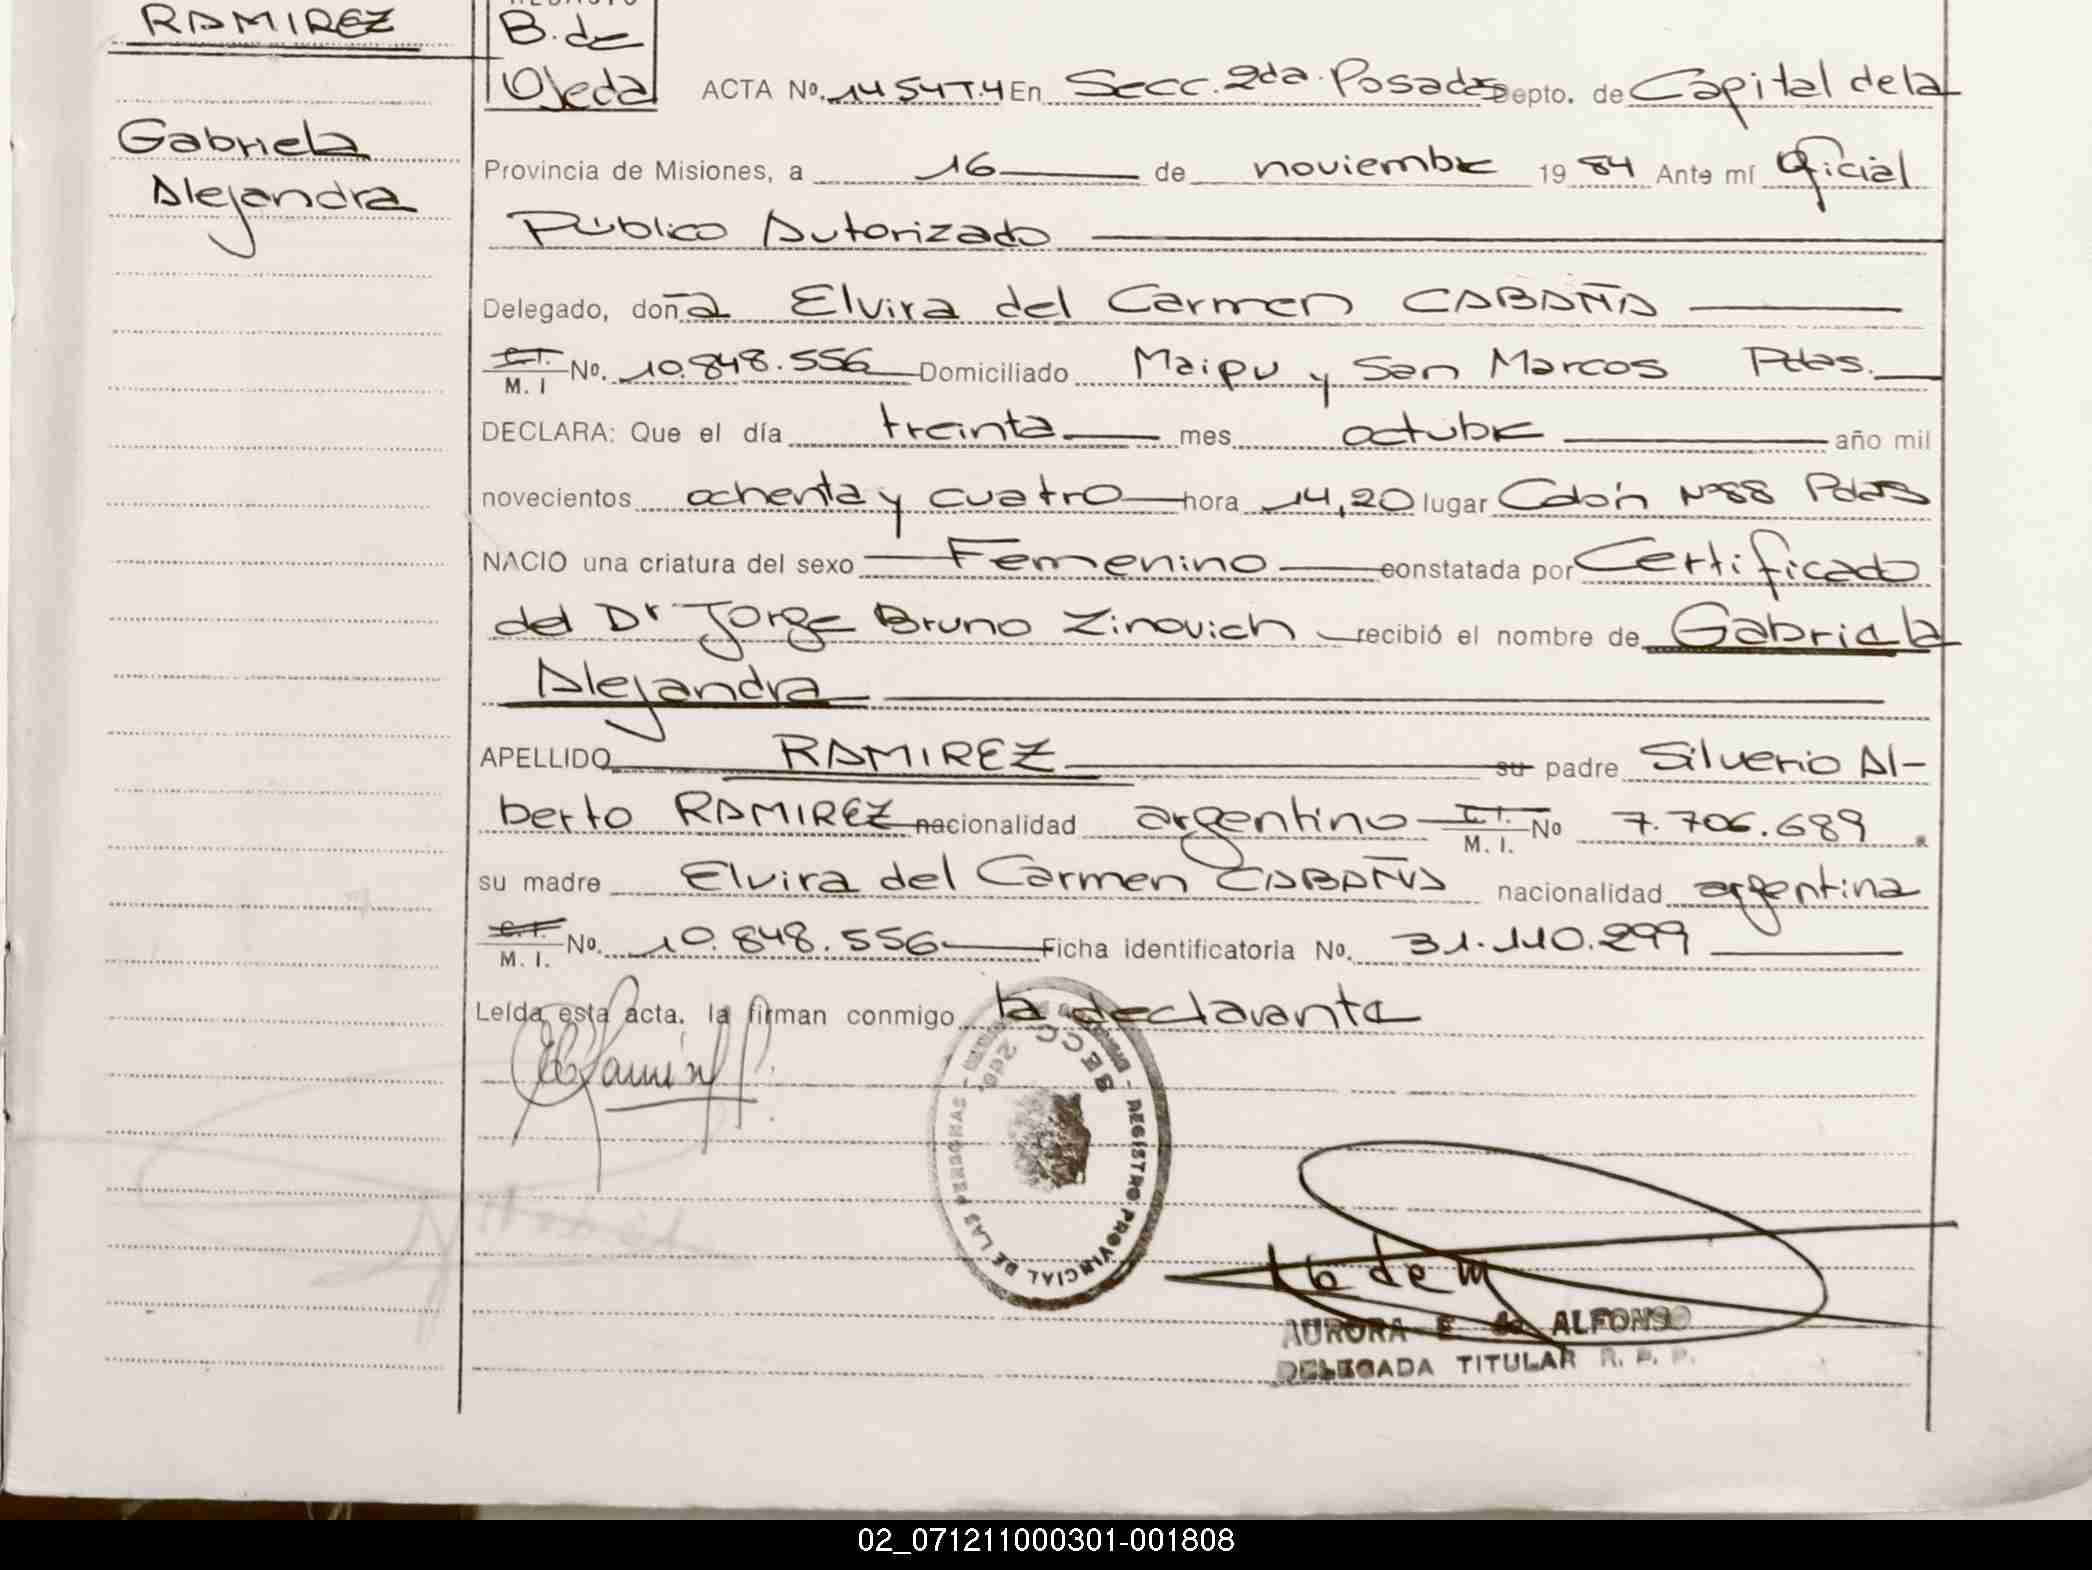 RAMIREZ
Gabriela
Alejandra
B. de
Ojeda
ACTA Nº. 1454T.4 En Secc. 2da. Posadas Depto. de Capital de la
Provincia de Misiones, a 16 de noviembre 19 84 Ante mí Oficial
Público Autorizado
Delegado, doña Elvira del Carmen CABAÑA
C.I.
M. I Nº. 10.848.556 Domiciliado Maipu y San Marcos Pdas.
DECLARA: Que el día treinta mes octubre año mil
novecientos ochenta y cuatro hora 14,20 lugar Colón Nº88 Pdas
NACIO una criatura del sexo Femenino constatada por Certificado
del Dr Jorge Bruno Zinovich recibió el nombre de Gabriela
Alejandra
APELLIDO RAMIREZ su padre Silverio Al-
berto RAMIREZ nacionalidad argentino C.I.
M. I. Nº 7.706.689
su madre Elvira del Carmen CABAÑA nacionalidad argentina
C.I.
M. I. Nº. 10.848.556 Ficha identificatoria Nº. 31.110.299
Leída esta acta, la firman conmigo la declarante
SECC 2da.
REGISTRO PROVINCIAL DE LAS PERSONAS
AURORA E de ALFONSO
DELEGADA TITULAR R. P. P.
02_071211000301-001808